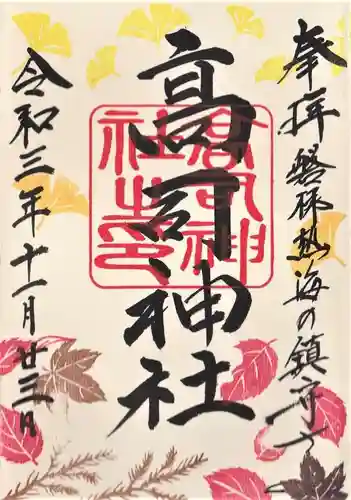 奉拝 磐梯熱海の鎮守
高司神社
高司神社之印
令和三年十一月廿三日